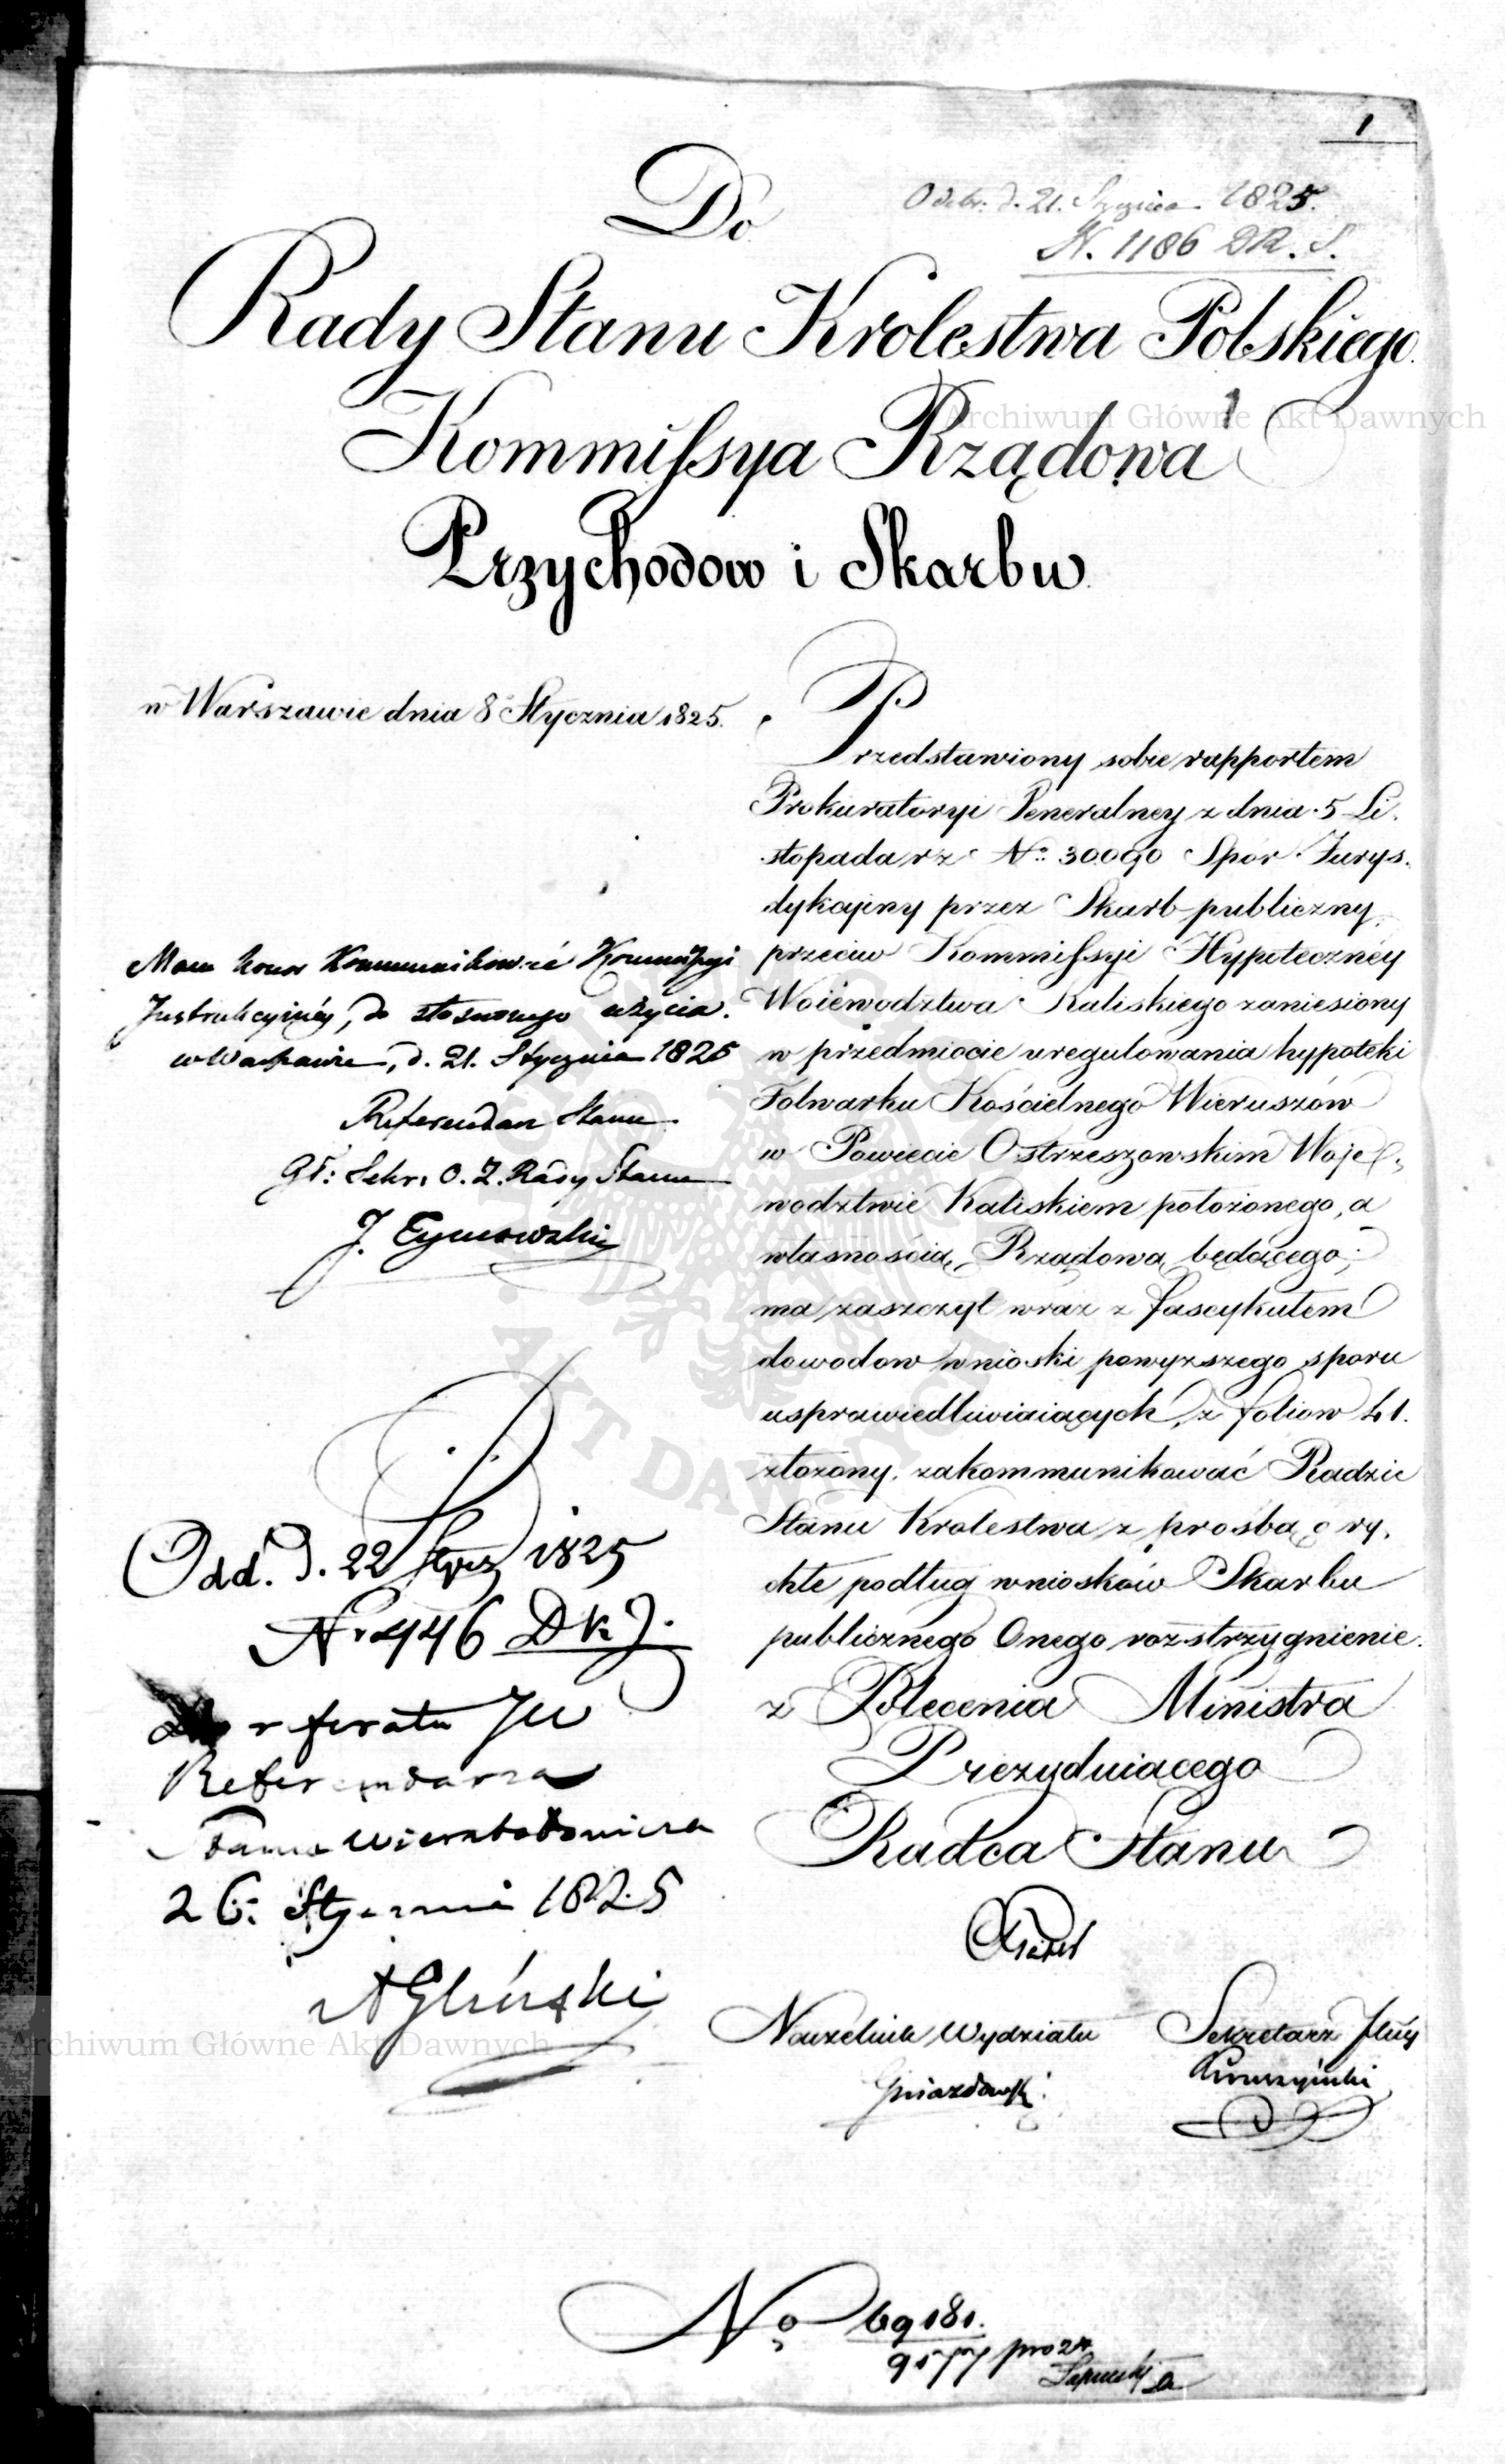 1
Do
Odebr. d. 21. Stycznia 1825.
N. 1186 D.R.S.
Rady Stanu Krolestwa Polskiego.
1
Kommissya Rządowa
Przychodow i Skarbu
w Warszawie dnia 8 Stycznia 1825.
Przedstawiony sobie rapportem
Prokuratoryi Generalney z dnia 5 Li-
stopada rz No 30090 Spor Jurys-
dykcyiny przez Skarb publiczny
przeciw Kommissyi Hypoteczney
Woiewodztwa Kaliskiego zaniesiony
w przedmiocie uregulowania hypoteki
Folwarku Kościelnego Wieruszów
w Powiecie Ostrzeszowskim Woje-
wodztwie Kaliskiem położonego, a
własnością Rządową będącego;
ma zaszczyt wraz z fascykułem
dowodow wnioski powyzszego sporu
usprawiedliwiaiących, z foliow 41.
złozony, zakommunikować Radzie
Stanu Krolestwa z prosbą o ry-
chłe podług wniosków Skarbu
publicznego Onego rozstrzygnienie.
z Polecenia Ministra
Prezyduiącego
Radca Stanu
Naczelnik Wydziału
Gniazdowski
Sekretarz Jlny
Mam honor Kommunikować Kommissyi
Instrukcyiney, do stosownego użycia.
w Warszawie, d. 21. Stycznia 1825
Referendarz Stanu
Gł: Sekr. O. Z. Rady Stanu
J. Tymowski
Odd. D. 22 Stycz 1825
Nr 446 D K J.
do referatu JW
Referendarza
Stanu Wierzbołowicza
26. Stycznia 1825
AGliński
No 69181.
Archiwum Główne Akt Dawnych
AKT DAWNYCH
Archiwum Główne Akt Dawnych